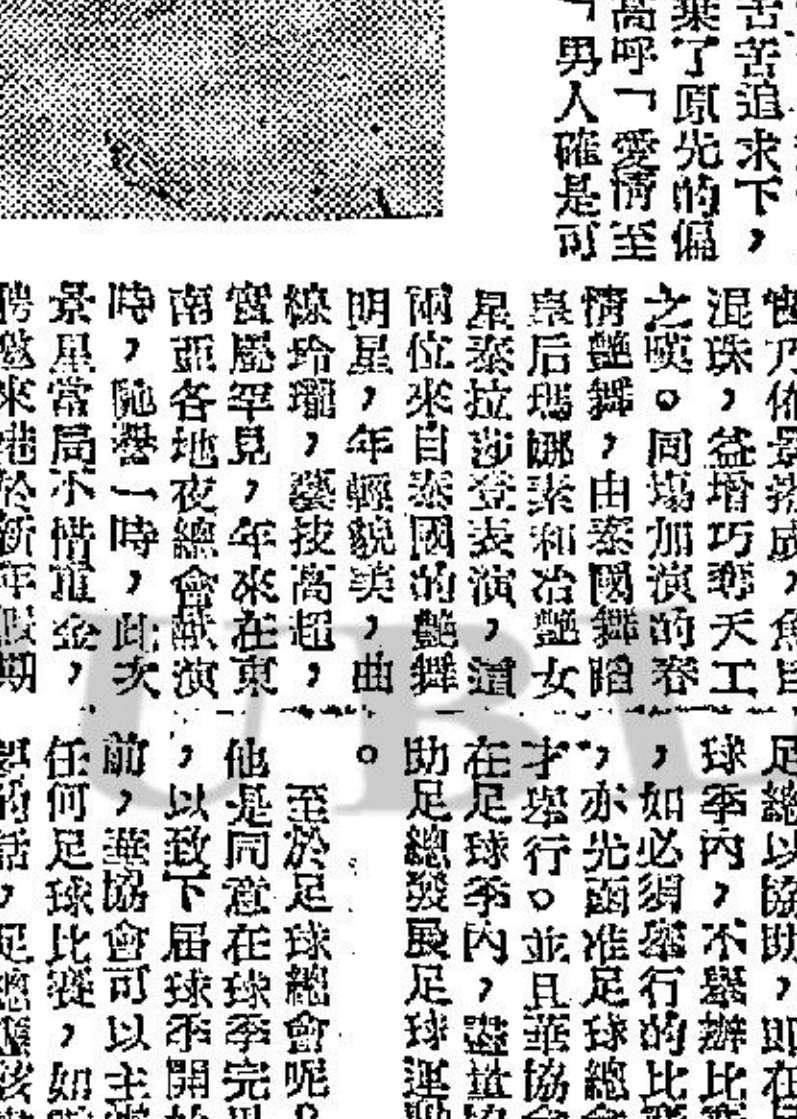 苦苦追求下，
棄了原先的偏
高呼「愛情至
「男人確是可
混珠，益增巧奪天工
之嘆。同場加演的春
情艷舞，由泰國舞蹈
皇后瑪娜素和冶艷女
星泰拉莎登表演，這
兩位來自泰國的艷舞
明星，年輕貌美，曲
線玲瓏，藝技高超，
實屬罕見，年來在東
南亞各地夜總會獻演
時，馳譽一時，此次
景星當局不惜重金，
聘邀來港於新年假期
足總以協助，即在
球季內，不舉辦比
，如必須舉行的比
，亦先函准足球總
才舉行。並且華協
在足球季內，盡量協
助足總發展足球運動
。
至於足球總會呢？
他是同意在球季完畢
，以致下屆球季開始
前，華協會可以主
任何足球比賽，如
的話，足總應該
UBL